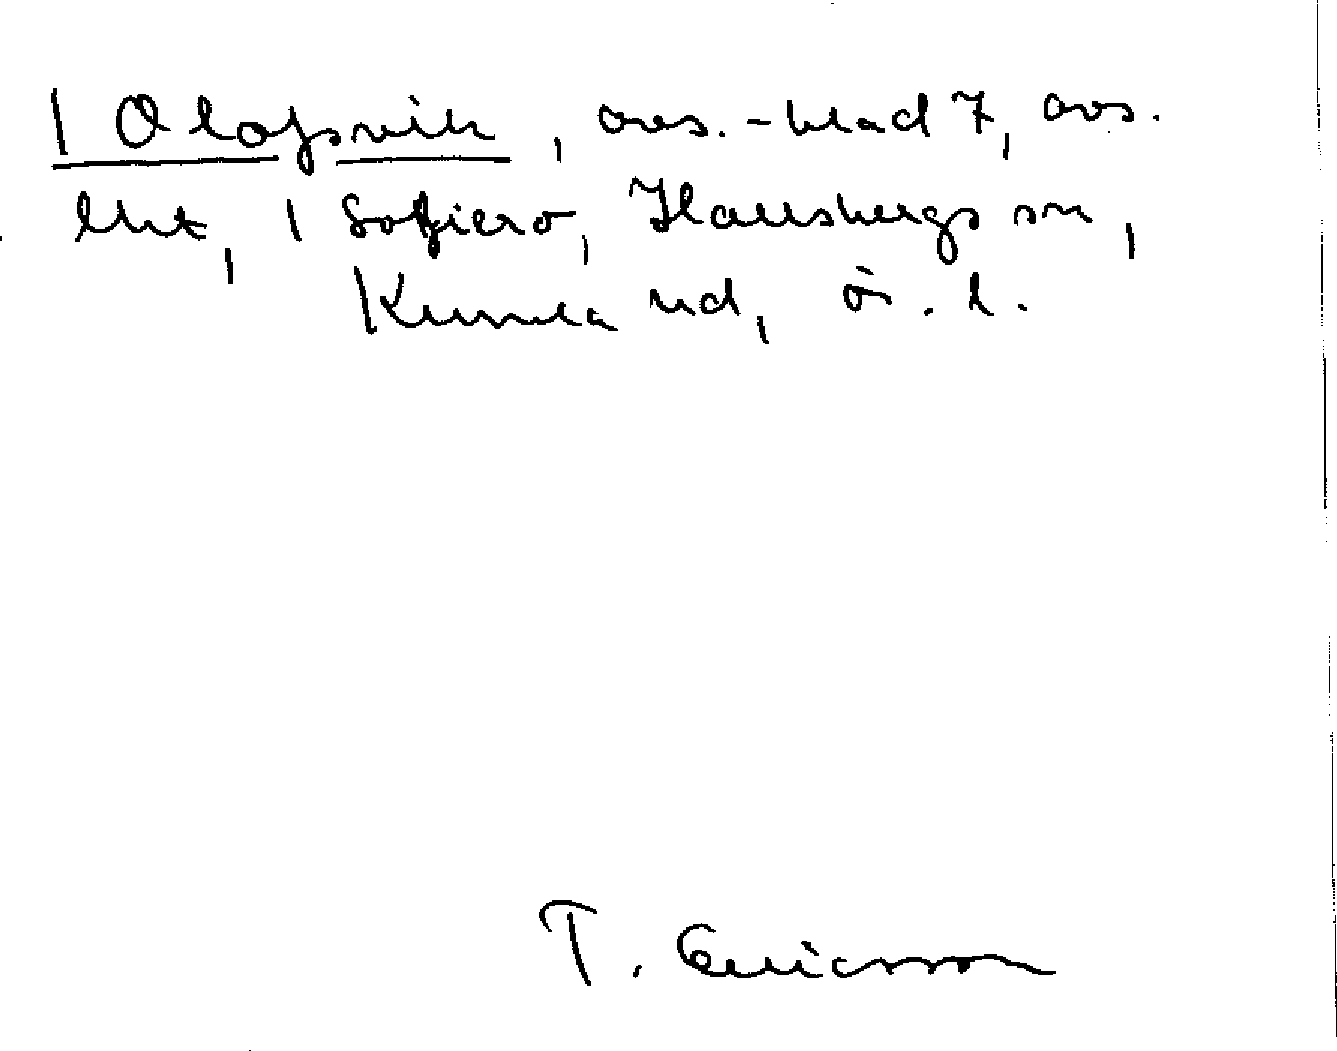 | Olofsvik, avs.-blad 7, avs.
lht, | Sofiero, Hallsbergs sn,
Kumla hd, ör. l.
T. Ericsson